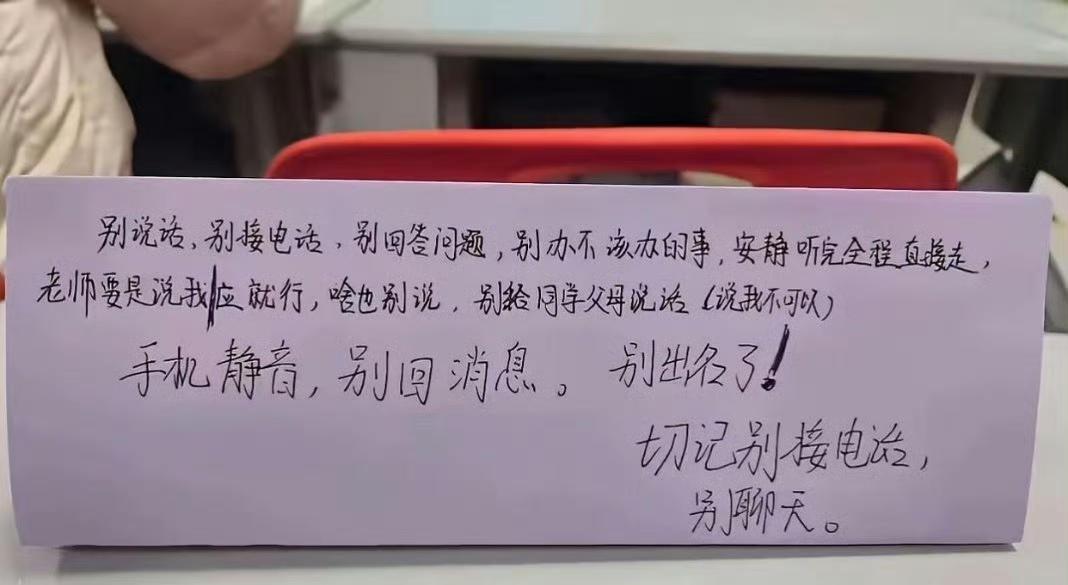 别说话，别接电话，别回答问题，别办不该办的事，安静听完全程直接走，
老师要是说我应就行，啥也别说，别给同学父母说话（说我不可以）
手机静音，别回消息。别出名了！
切记别接电话，
别聊天。